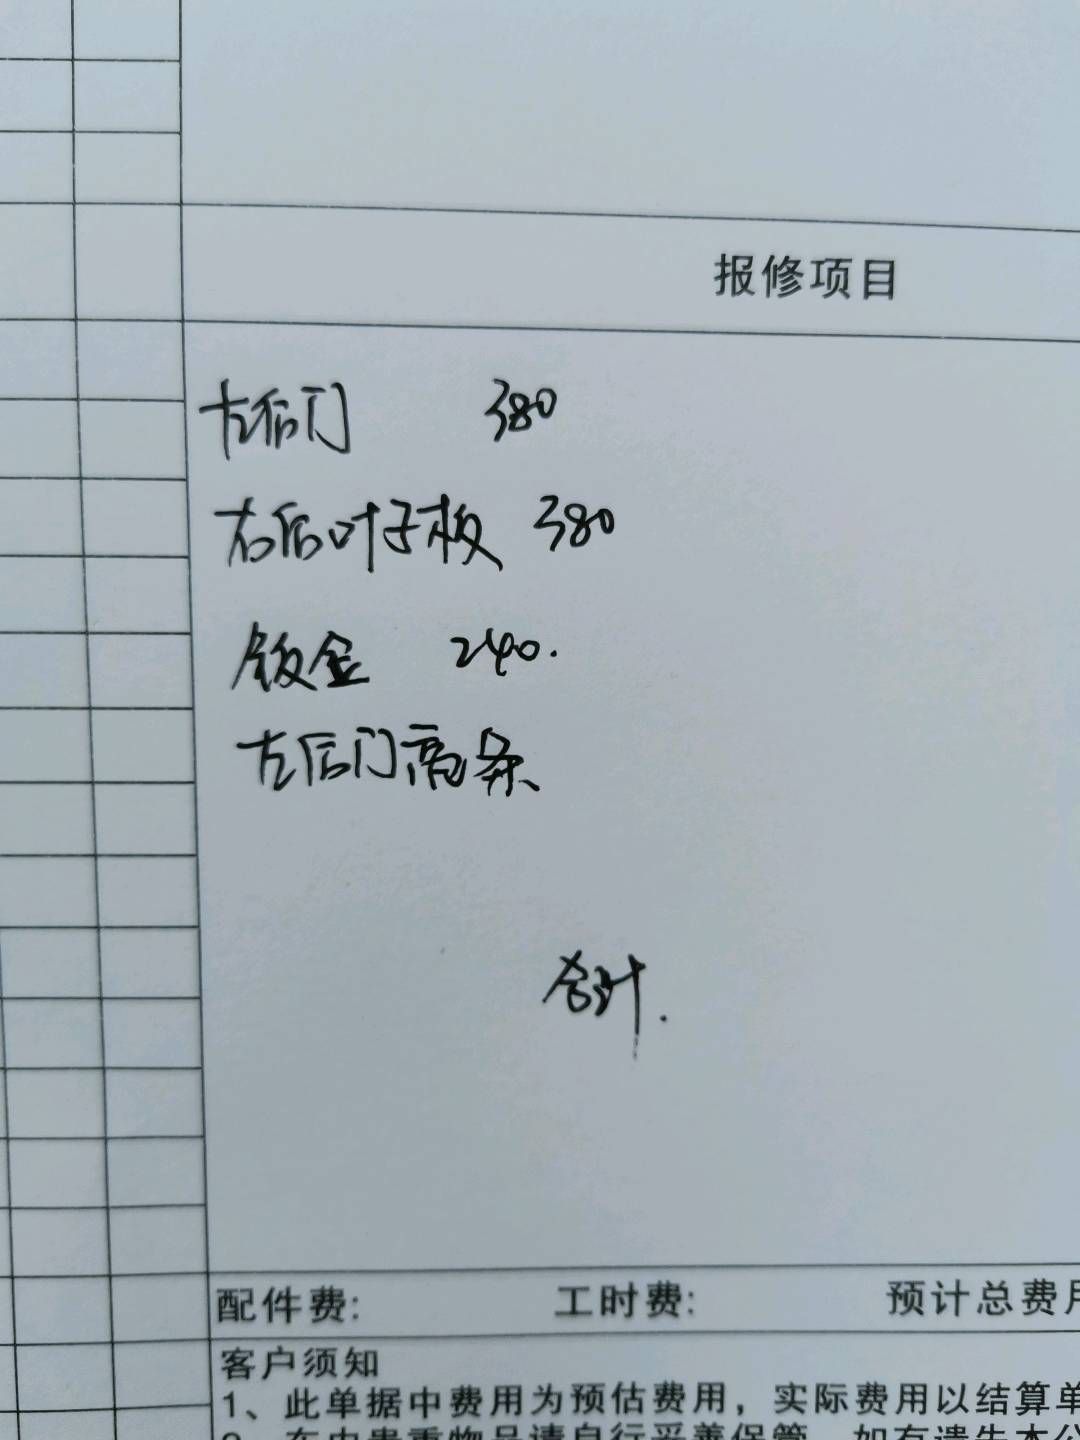 报修项目
左后门 380
右后叶子板 380
钣金 240.
左后门亮条
合计.
配件费: 工时费: 预计总费用
客户须知
1、此单据中费用为预估费用，实际费用以结算单